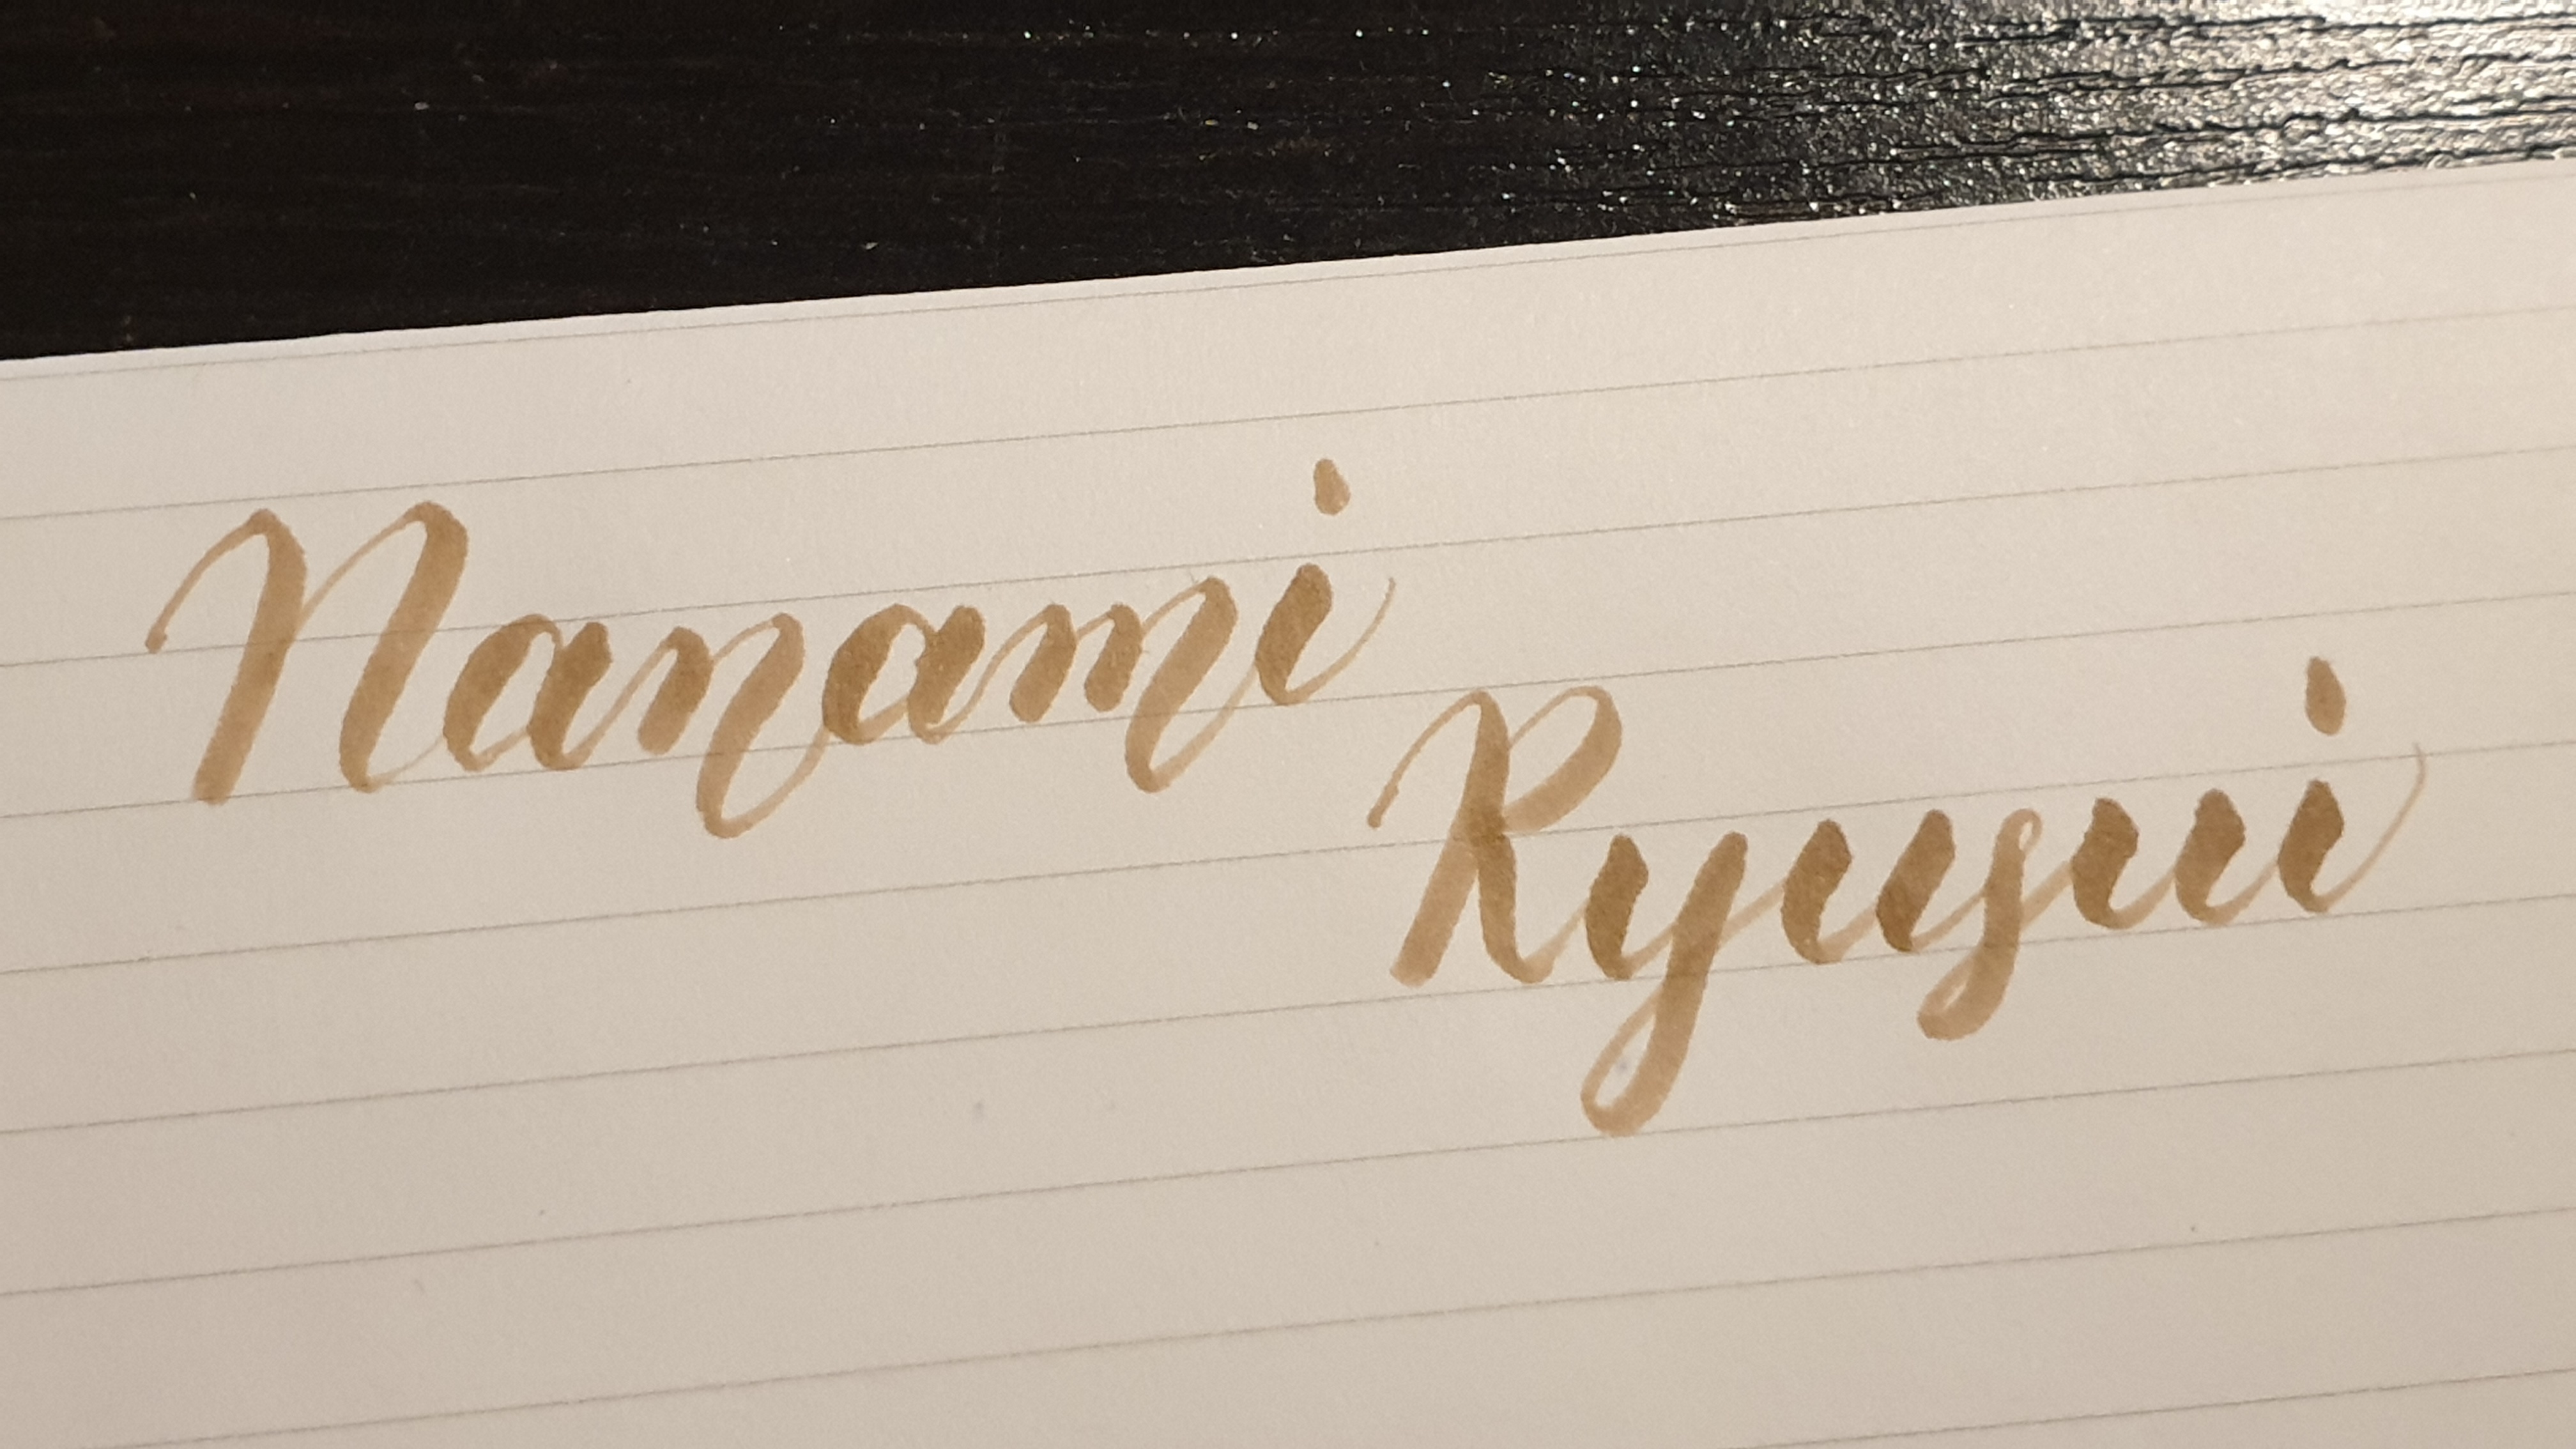 Nanami
Ryusui